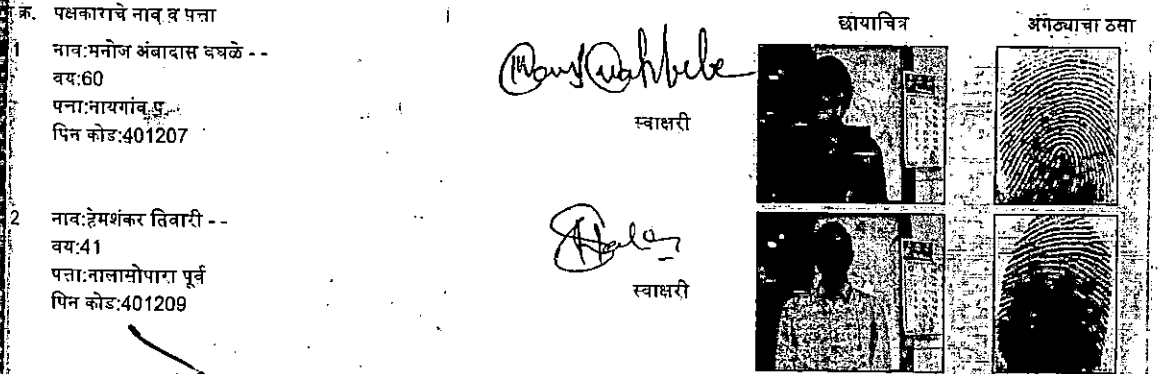 क्र. पक्षकाराचे नाव व पत्ता
छायाचित्र
अंगठ्याचा ठसा
1
नाव:मनोज अंबादास वघळे - -
वय:60
पत्ता:नायगांव पू.
पिन कोड:401207
स्वाक्षरी
2
नाव:हेमशंकर तिवारी - -
वय:41
पत्ता:नालासोपारा पूर्व
पिन कोड:401209
स्वाक्षरी